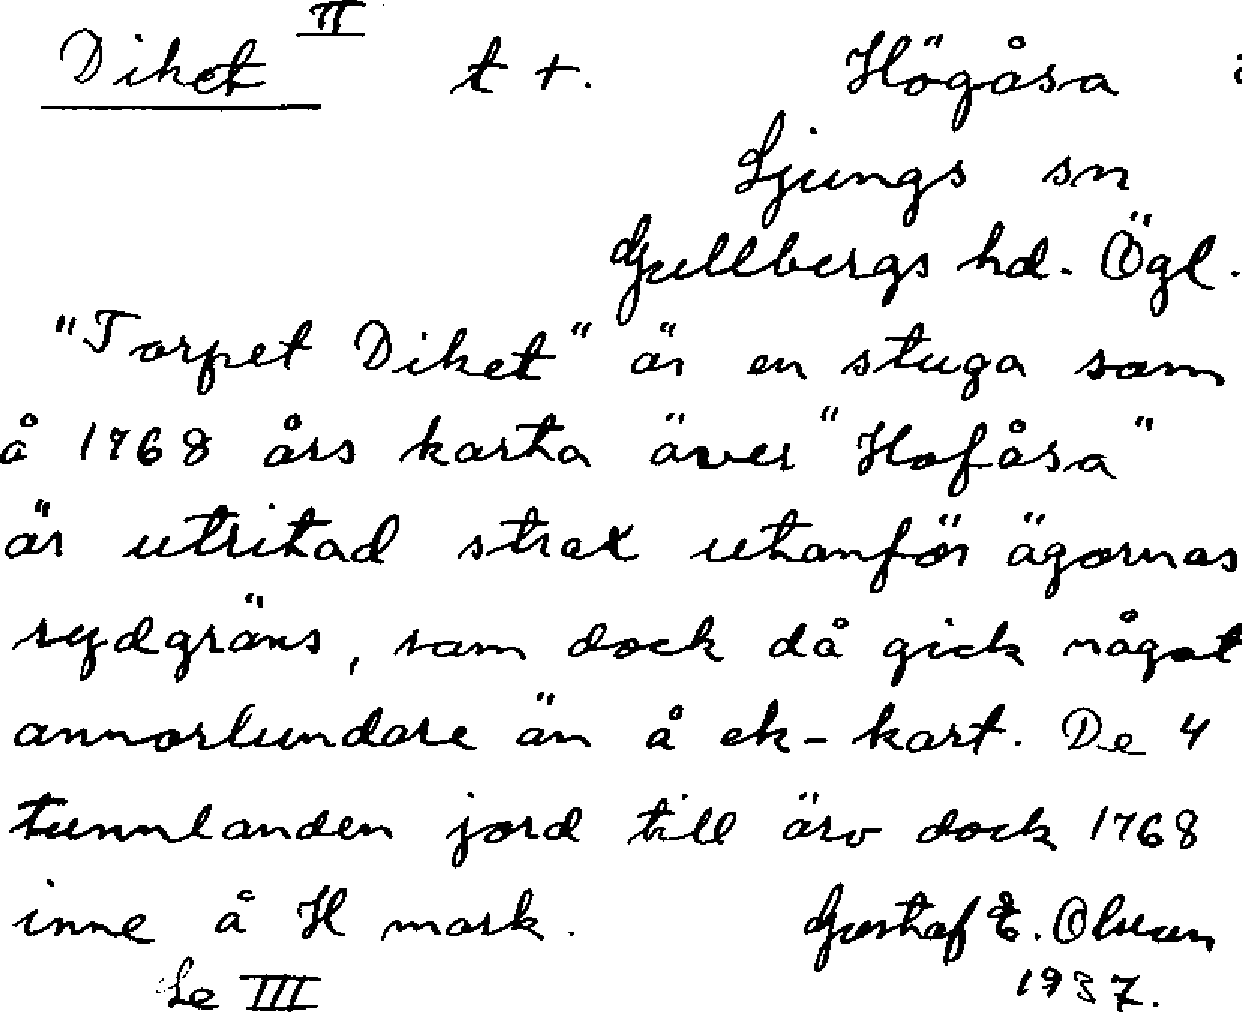 Diket II t +. Högåsa
Ljungs sn
Gullbergs hd. Ögl.
"Torpet Diket" är en stuga som
å 1768 års karta över "Hofåsa"
är utritad strax utanför ägornas
sydgräns, som dock då gick något
annorlundare än å ek-kart. De 4
tunnlanden jord till äro dock 1768
inne å H mark.
Gustaf E. Olsson
Se III 1937.